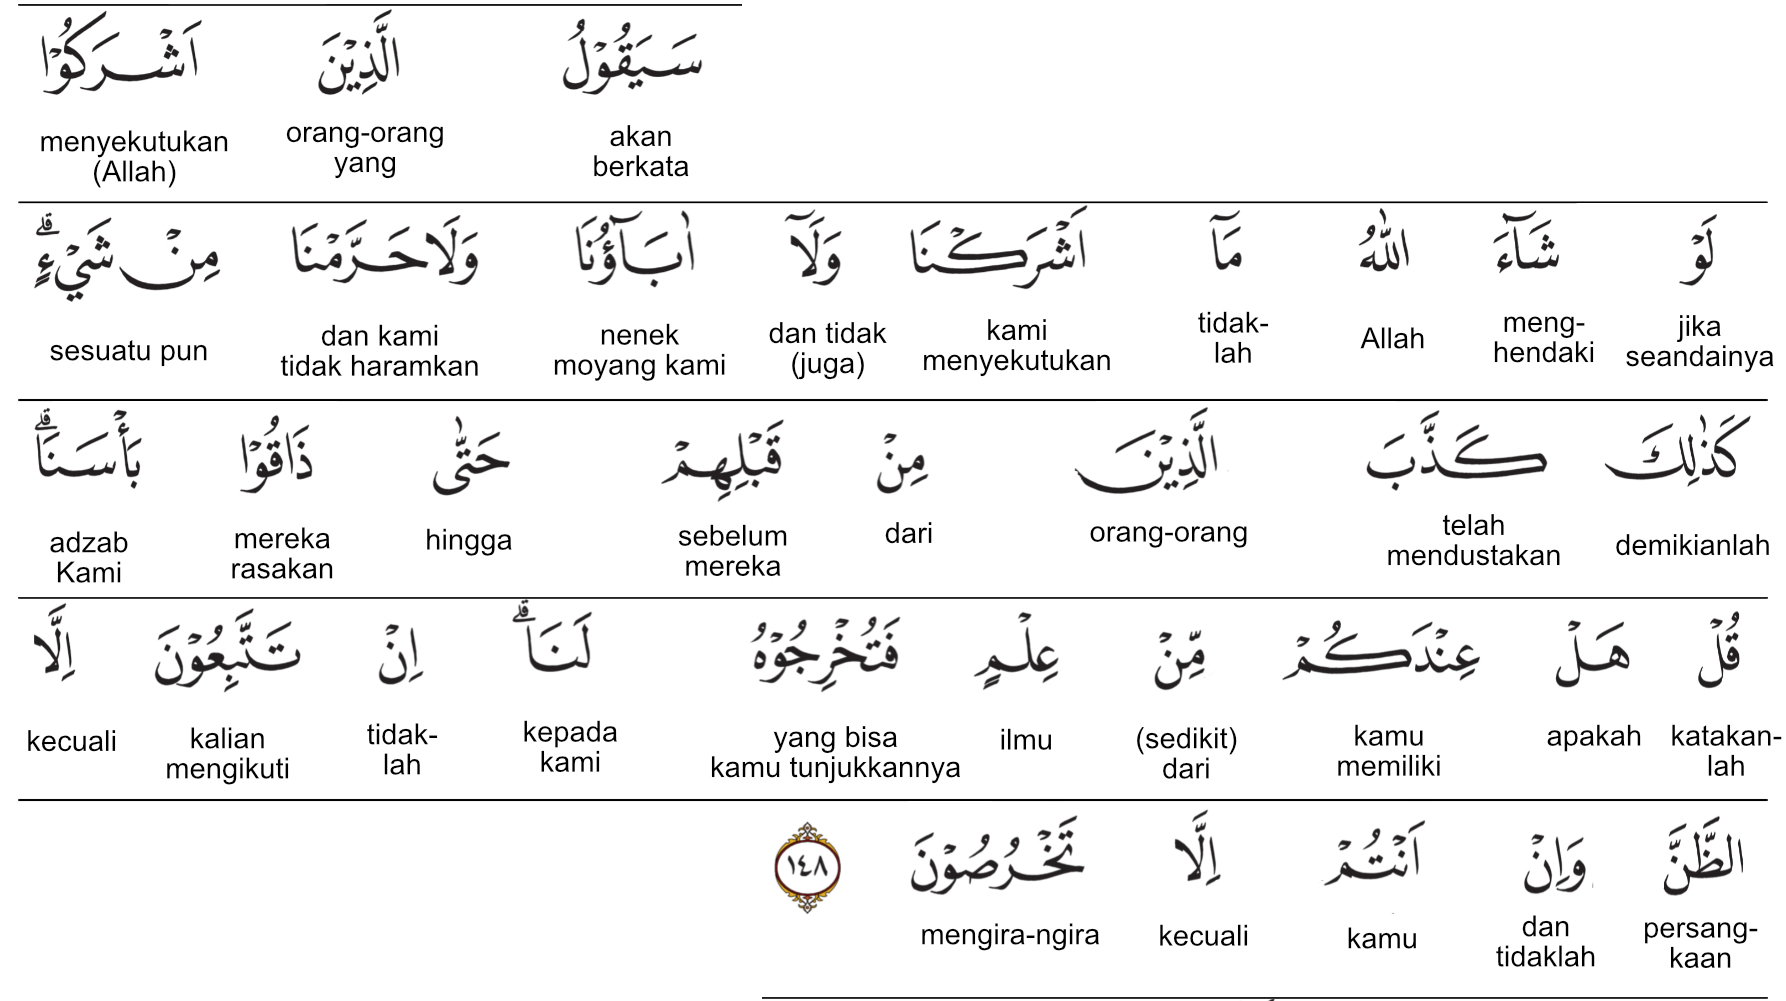 سَيَقُوْلُ الَّذِيْنَ اَشْرَكُوْا
akan berkata orang-orang yang menyekutukan (Allah)
لَوْ شَاۤءَ اللّٰهُ مَآ اَشْرَكْنَا وَلَآ اٰبَاۤؤُنَا وَلَا حَرَّمْنَا مِنْ شَيْءٍۗ
jika seandainya meng-hendaki Allah tidak-lah kami menyekutukan dan tidak (juga) nenek moyang kami dan kami tidak haramkan sesuatu pun
كَذٰلِكَ كَذَّبَ الَّذِيْنَ مِنْ قَبْلِهِمْ حَتّٰى ذَاقُوْا بَأْسَنَاۗ
demikianlah telah mendustakan orang-orang dari sebelum mereka hingga mereka rasakan adzab Kami
قُلْ هَلْ عِنْدَكُمْ مِّنْ عِلْمٍ فَتُخْرِجُوْهُ لَنَاۗ اِنْ تَتَّبِعُوْنَ اِلَّا
katakan-lah apakah kamu memiliki (sedikit) dari ilmu yang bisa kamu tunjukkannya kepada kami tidak-lah kalian mengikuti kecuali
الظَّنَّ وَاِنْ اَنْتُمْ اِلَّا تَخْرُصُوْنَ ١٤٨
persang-kaan dan tidaklah kamu kecuali mengira-ngira